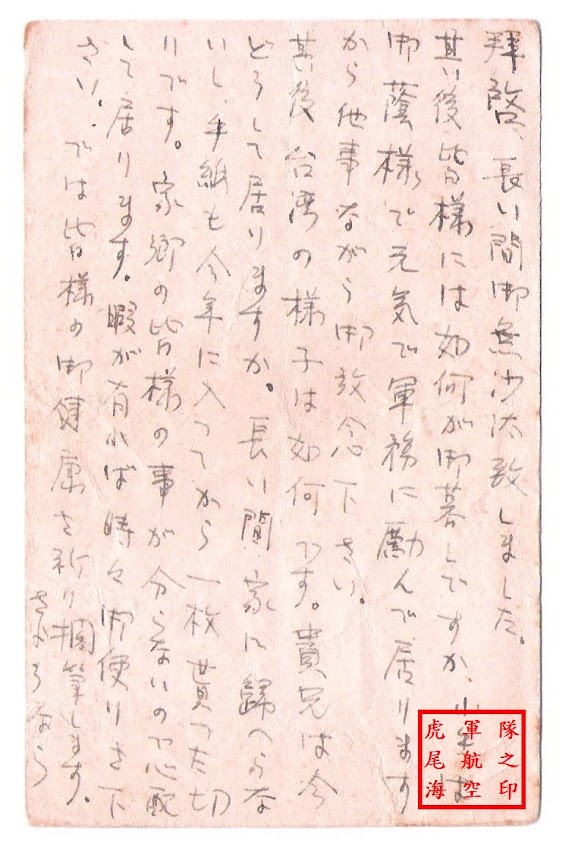 拝啓、長い間御無沙汰致しました。
其後皆様には如何が御暮しですか、小生は
御蔭様で元気で軍務に励んで居ります
から他事ながら御放念下さい。
其後台湾の様子は如何です。貴兄は今
どうして居りますか。長い間家に歸へらな
いし、手紙も今年に入つてから一枚貰つた切
りです。家郷の皆様の事が分らないので心配
して居ります。暇が有れば時々御便りを下
さい。では皆様の御健康を祈り擱筆します。
さようなら
隊之印
軍航空
虎尾海